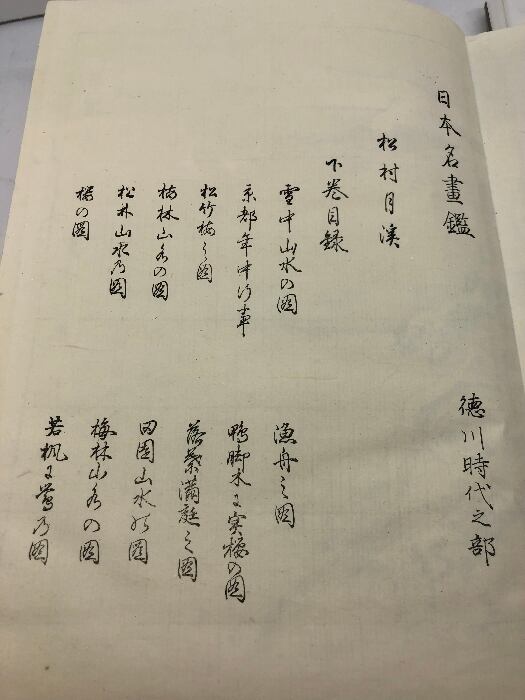 日本名畫鑑
徳川時代之部
松村月溪
下巻目録
雪中山水の圖
漁舟之圖
京都年中行事
鴨脚木に実櫻の圖
松竹梅之圖
落葉満庭之圖
梅林山水の圖
田園山水の圖
松林山水乃圖
梅林山水の圖
櫻の圖
若楓に鶯乃圖